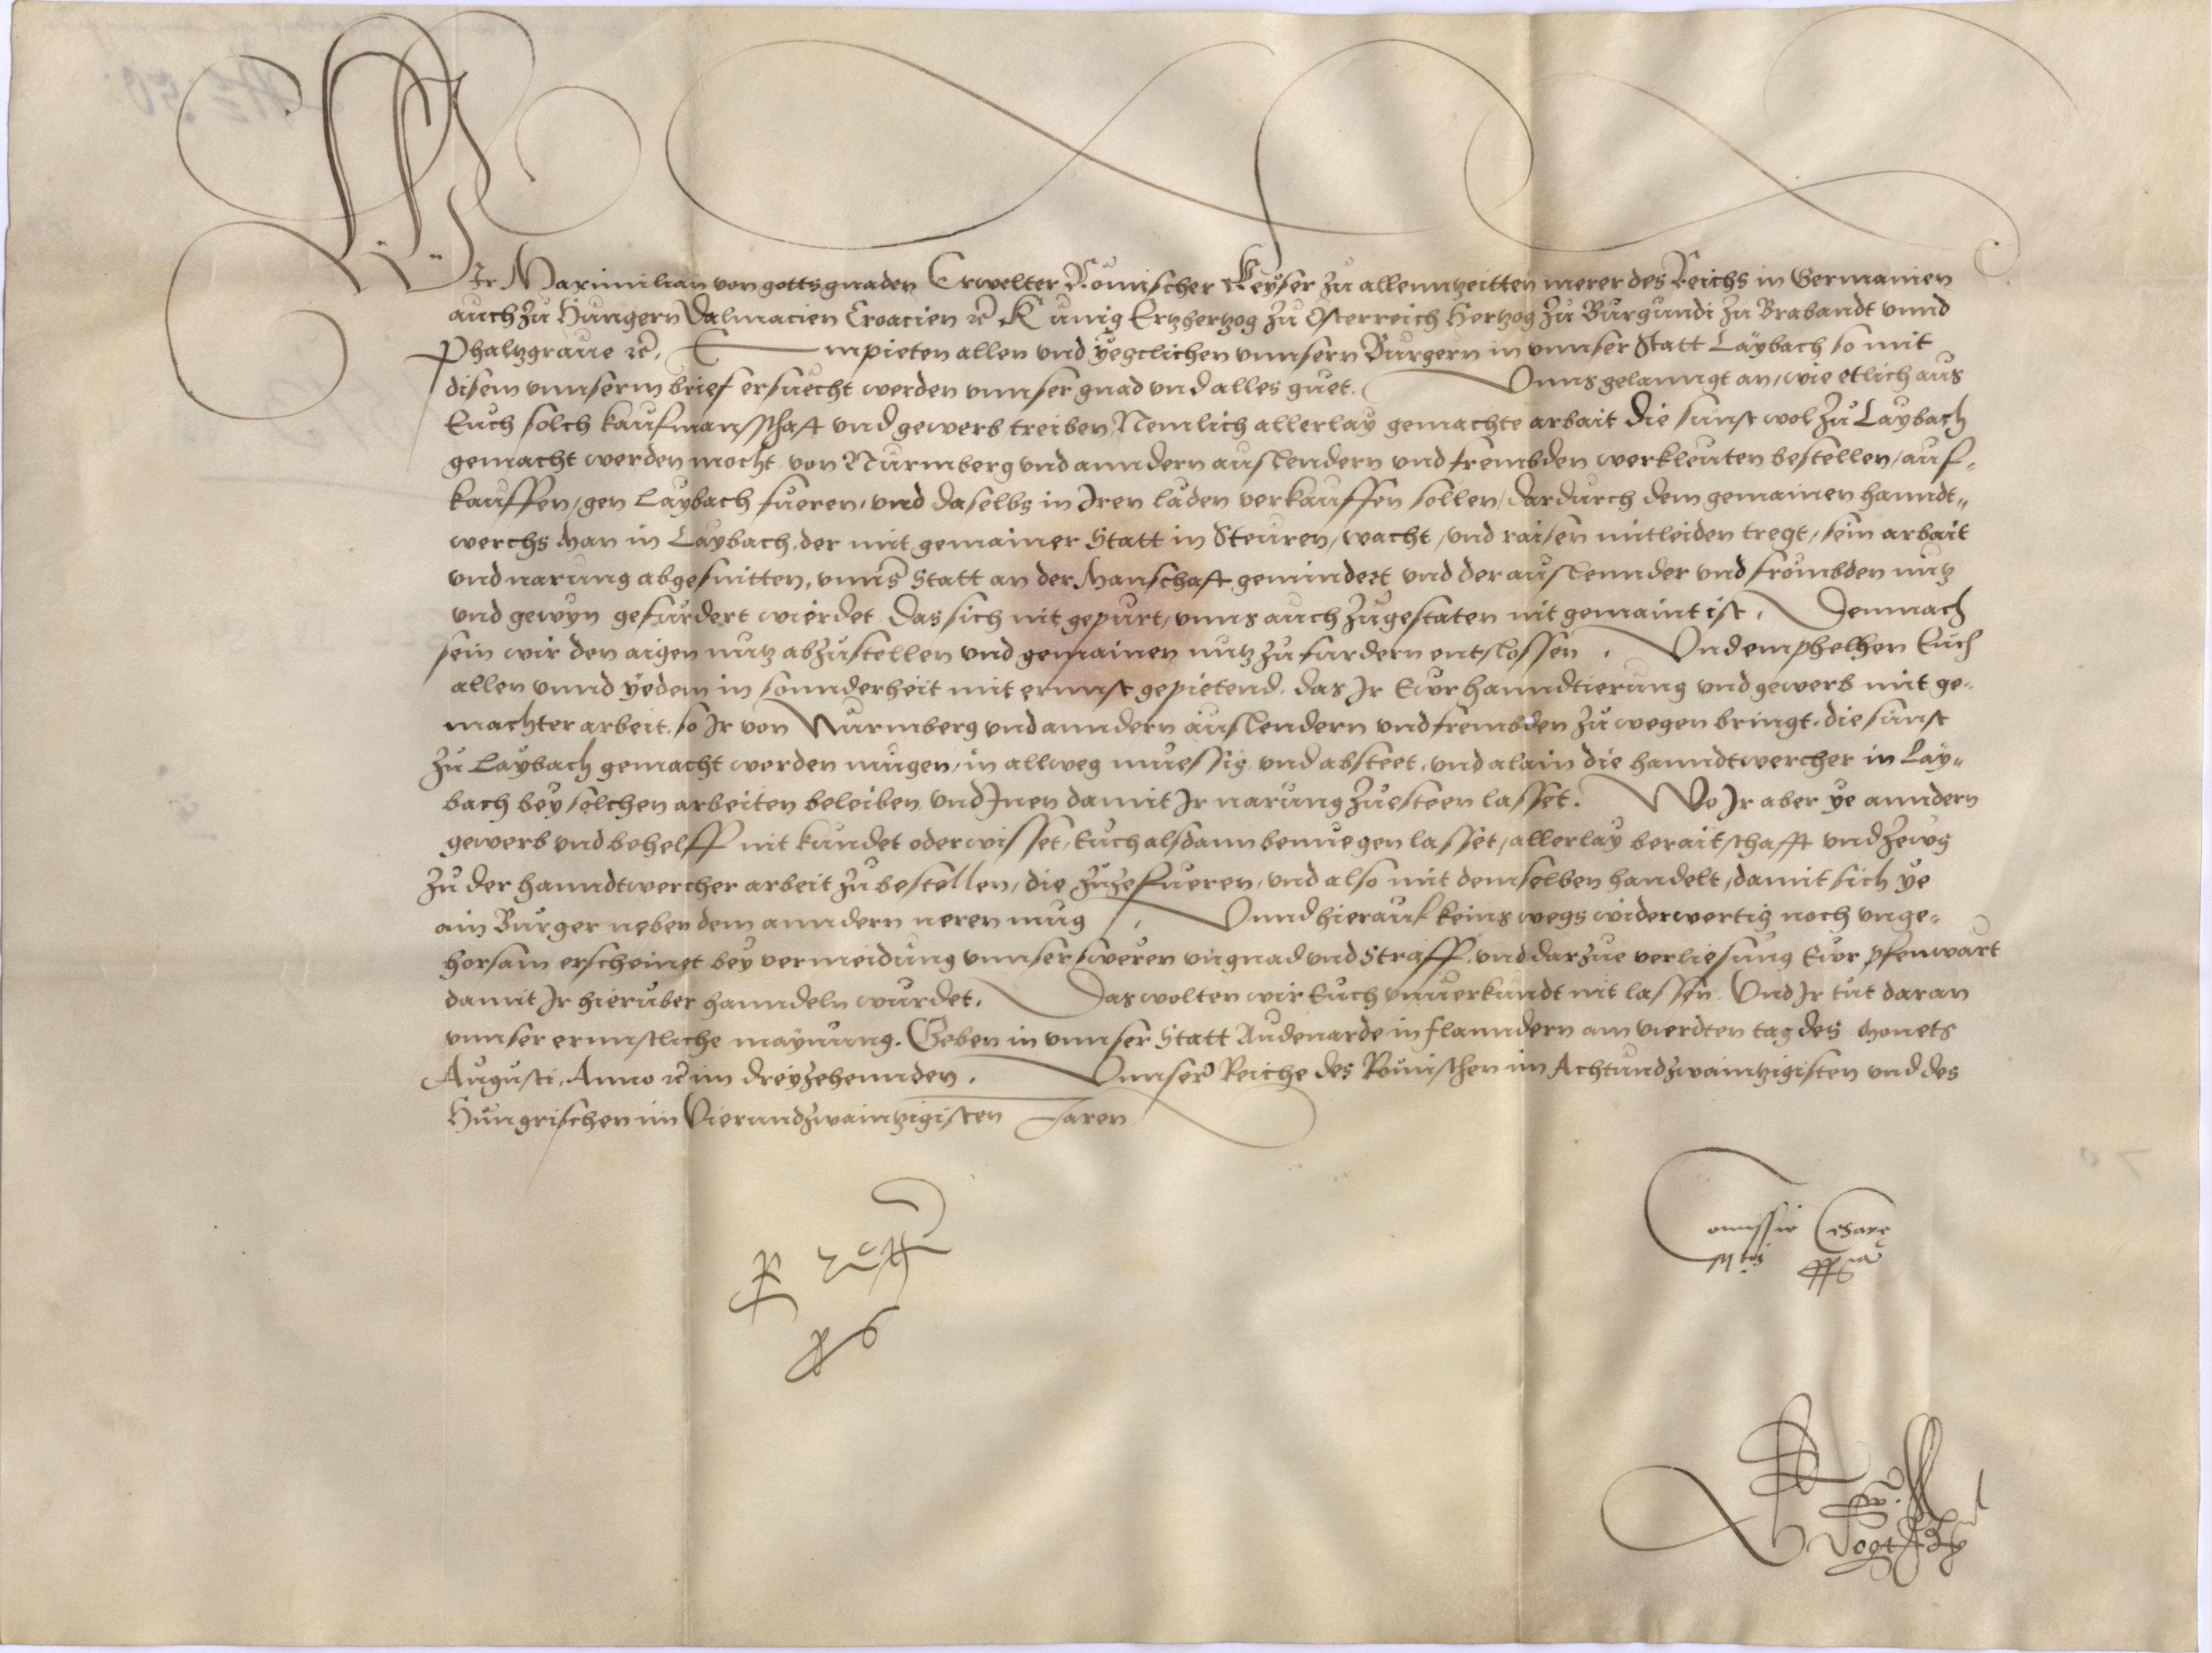 WIr Maximilian von gotts gnaden Erwelter Römischer Keyser zu allenntzeitten merer des Reichs in Germanien
auch zu Hungern Dalmacien Croacien ꝛc̄ Kunig Ertzhertzog zu Osterreich Hertzog zu Burgundi zu Brabandt vnnd
Phaltzgraue ꝛc̄. Empieten allen vnd yegclichen vnnsern Burgern in vnnser Statt Laybach so mit
disem vnnserm brief ersuecht werden vnnser gnad vnd alles guet. Vnns gelanngt an, wie etlich aus
Euch solch kaufmansschaft vnd gewerb treiben Nemlich allerlay gemachte arbait die sunst wol zu Laybach
gemacht werden mocht von Nurmberg vnd anndern auslendern vnd frembden werkleuten bestellen, auf-
kauffen, gen Laybach fueren, vnd daselbs in Iren läden verkauffen sollen, dardurch dem gemainen hanndt-
werchs Man in Laybach, der mit gemainer Statt in Steuren, wacht, vnd raisen mitleiden tregt, sein arbait
vnd narung abgesnitten, vnns̄ Statt an der Manschaft gemindert vnd der auslennder vnd frömbden nutz
vnd gewyn gefurdert wierdet, Das sich nit gepurt, vnns auch zugestaten nit gemaint ist. Demnach
sein wir den aigen nutz abzustellen vnd gemainen nutz zu furdern entslossen. Vnd emphelhen Euch
allen vnnd yedem in sonnderheit mit ernnst gepietend, das Ir Ewr hanndtierung vnd gewerb mit ge-
machter arbeit, so Ir von Nurmberg vnd anndern auslendern vnd frembden zu wegen bringt, die sunst
zu Laybach gemacht werden mugen, in allweg muessig vnd absteet, vnd alain die hanndtwercher in Lay-
bach bey solchen arbeiten beleiben vnd Inen damit Ir narung zuesteen lasset. Wo Ir aber ye anndern
gewerb vnd behelff nit kundet oder wisset, Euch alsdann benuegen lasset, allerlay beraitschafft vnd zewg
zu der hanndtwercher arbeit zu bestellen, die zuzefueren, vnd also mit demselben handelt, damit sich ye
ain Burger neben dem anndern neren mug. Vnnd hierauf keins wegs widerwertig noch vnge-
horsam erscheinet bey vermeidung vnnser sweren vngnad vnd Straff, vnd darzue verliesung Ewr pfenwart
damit Ir hieruber hanndeln wurdet. Das wolten wir Euch vnuerkundt nit lassen. Vnd Ir tut daran
vnnser ernnstliche maynung. Geben in vnnser Statt Audenarde in Flanndern am vierdten tag des Monets
Augusti, Anno ꝛc̄ im dreyzehennden. Vnnser̄ Reiche des Römischen im Achtundzwaintzigisten vnd des
Hungrischen im Vierundzwaintzigisten Jaren
Comissio Cesare
Mtis ppria